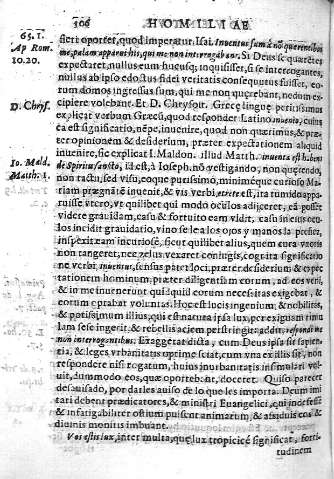 306 HOMILIAE
65. 1.
Ap Rom.
10. 20.
D. Chrys.
Io. Mald.
Matth. 1.
fieri oportet, quod imperatur. Isai. Inuentus sum à nō querentibus
me, palam apparui his, qui me non interrogabant. Si Deus se quærier
expectaret, nullus eum hucusq; inquisisset, si se interrogantes,
nullus ab ipso edoctus fidei veritatis consequutus fuisset, co-
rum domos ingressus sum, qui me non quærebant, nedum ex-
cipere volebant. Et D. Chrysost. Grecę linguę peritissimus
explicat verbum Græcũ, quod respondet Latino inuenio, cuius
ea est significatio, nēpe, inuenire, quod non quærimus, & præ-
ter opinionem & desiderium, præter expectationem aliquid
inuenire, sic explicat I. Maldon. illud Matth. inuenta est habens
de Spiritu sancto, id est, à Ioseph. nō vestigando, non quęrendo,
non tactu, sed visu, eoque purissimo, minimeque curioso Ma-
riam prægnātē inuenit, & vis verbi, est, ita timido appa-
ruisse vtero, vt quilibet qui modo oculos adijceret, eā posset
videre grauidam, casu & fortuito eam vidit, casu in eius ocu-
los incidit grauidatio, vino se le a los ojos y manos la preñez,
inspexit eam incuriosè, sicut quilibet alius, quem cura vxoris
non tangeret, nec zelus vexaret coniugis, cognita significatio
ne verbi, inuentus, sensus patet loci, præter desiderium & expe-
ctationem hominum, præter diligentiam eorum, ad eos veni,
& in me inuenerunt quidquid eorum necessitas exigebat, &
eorum optabat voluntas. Hoc est loci ingenium & nobilitas,
& potissimum illius, qui est natura ipsa lux, per exiguam rimu
lam sese ingerit, & rebellis aciem perstringit: addit, respondi me
non interrogantibus. Exaggerat dicta, cum Deus ipse sit sapien-
tia, & leges vrbanitatis optime sciat, cum vna ex illis sit, non
respondere nisi rogatum, huius inurbanitatis insimulari vo-
luit, dummodo eos, quæ oportebant, doceret. Quiso parecer
desauisado, por darles auiso de lo que les importa. Deum imi
tari debent prædicatores, & ministri Euangelici, qui indefessè
& infatigabiliter ostium pulsent animarum, & assiduis eos &
diuinis monitis imbuant.
Vos estis lux, inter multa, quæ lux tropicicè significat, forti-
tudinem